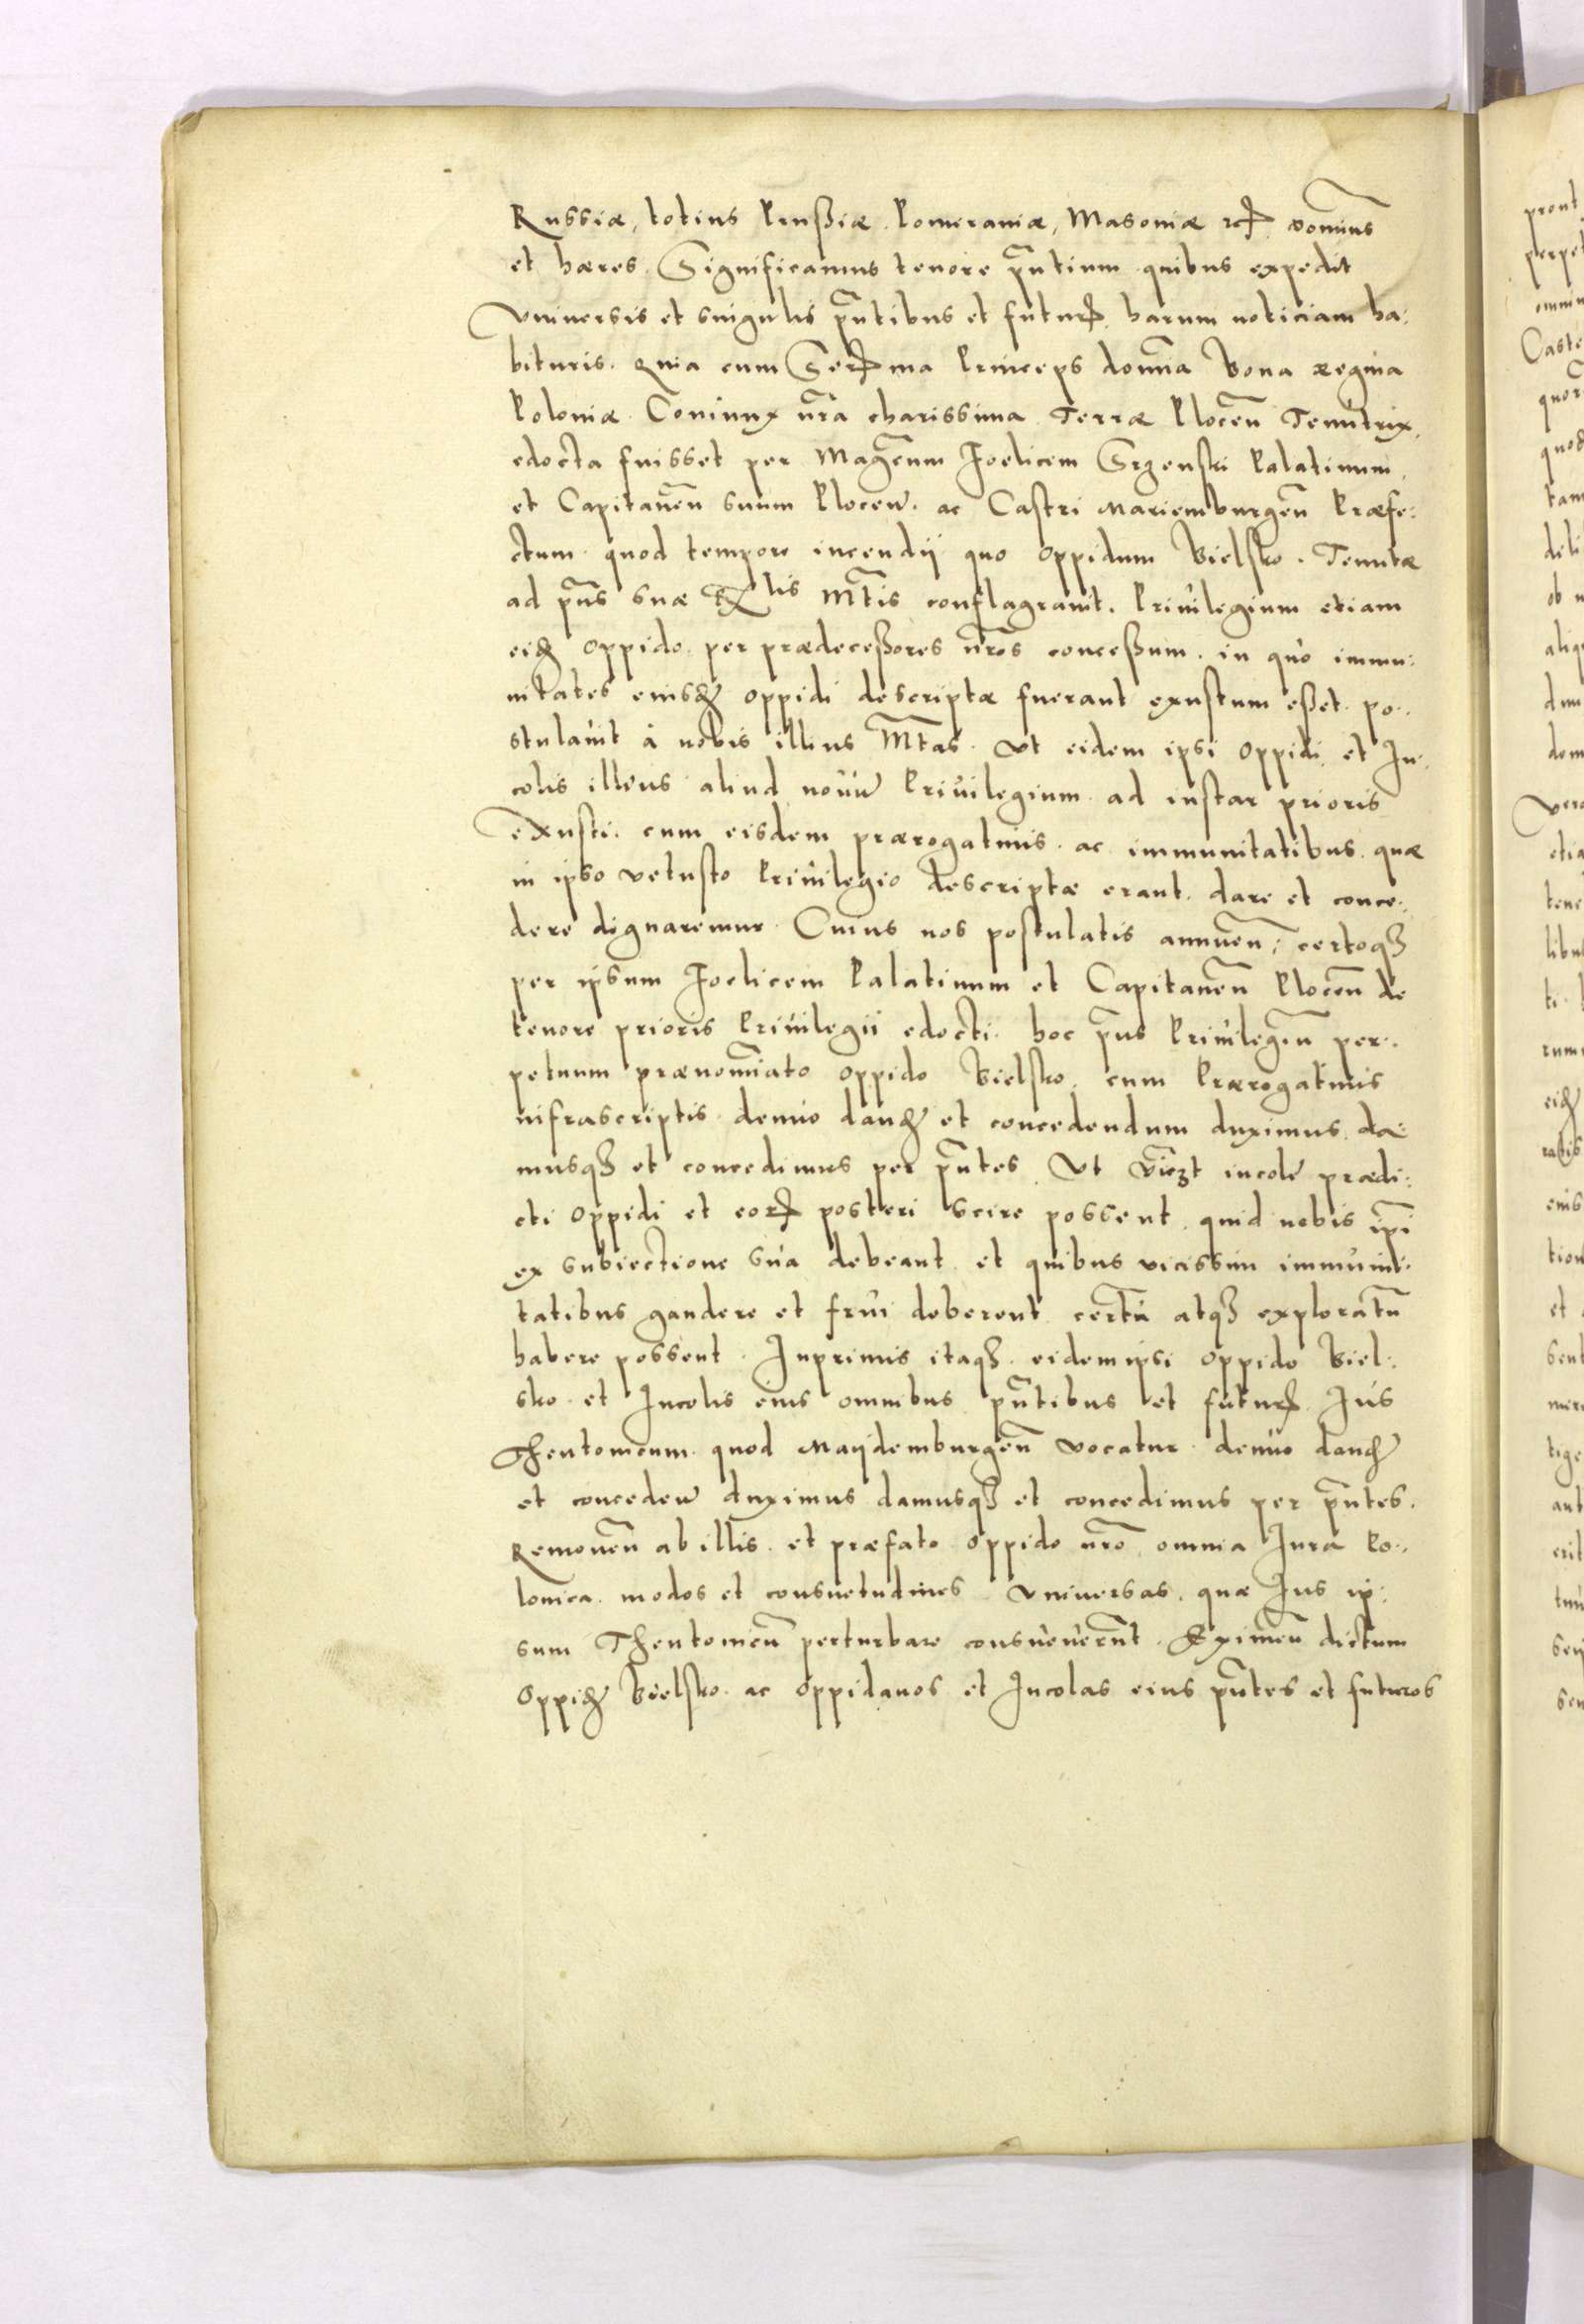 Russiæ, totius Prußiæ. Pomeraniæ, Masoniæ ꝛcꝝ. dominus̃
et hæres. Significamus tenore pñtium quibus expedit
Vniuersis et singulis pñtibus et futurꝝ. harum noticiam ha:
bituris. Quia cum Serꝝma Princeps domĩa Bona regina
Poloniæ Coniunx nr̃a charissima Terræ Plocen̄ Tenutrix,
edocta fuisset per Magcum̃ Foelicem Srzenski Palatinum,
et Capitaneū suum Plocen̄. ac Castri Mariemburgen̄ Præfe:
ctum quod tempore incendij quo Oppidum Bielsko. Tenutæ
ad pñs suæ R lis Mtis̃ conflagrauit. Priuilegium etiam
eidꝫ Oppido per prædeceßores nr̃os conceßum. in quo immu:
nitates eiusdꝫ Oppidi descriptæ fuerant exustum eßet. po:
stulauit à nobis illius Mtas̃. Vt eidem ipsi Oppidi et In:
colis illius aliud nouū Priuilegium ad instar prioris
exusti. cum eisdem prærogatiuis. ac immunitatibus quæ
in ipso vetusto Priuilegio descriptæ erant. dare et conce:
dere dignaremur. Cuius nos postulatis annuen̄: certoqꝫ
per ipsum Foelicem Palatinum et Capitaneū Plocen̄ de
tenore prioris Priuilegii edocti hoc pñs Priuilegiū per:
petuum prænomĩato Oppido Bielsko. cum Prærogatiuis
infrascriptis denuo dandꝫ et concedendum duximus da:
musqꝫ et concedimus per pñtes. Vt vicꝫt incole prædi:
cti Oppidi et eorꝝ posteri scire possent quid nobis ipĩ
ex subiectione sua debeant et quibus vicissim immuni:
tatibus gaudere et frui deberent certū atqꝫ exploratū
habere possent. Inprimis itaqꝫ eidem ipsi Oppido Biel:
sko et Incolis eius omnibus pñtibus et futurꝝ Jus
Theutonicum quod Maydemburgen̄ vocatur denuo dandꝫ
et conceden̄ duximus damusqꝫ et concedimus per pñtes.
Remouen̄ ab illis et præfato Oppido nr̃o omnia Jura Po:
lonica modos et consuetudines vniuersas. quæ Jus ip:
sum Theutonicū perturbare consueuerūt. Eximen̄ dictum
Oppidꝫ Bielsko ac Oppidanos et Incolas eius pñtes et futuros